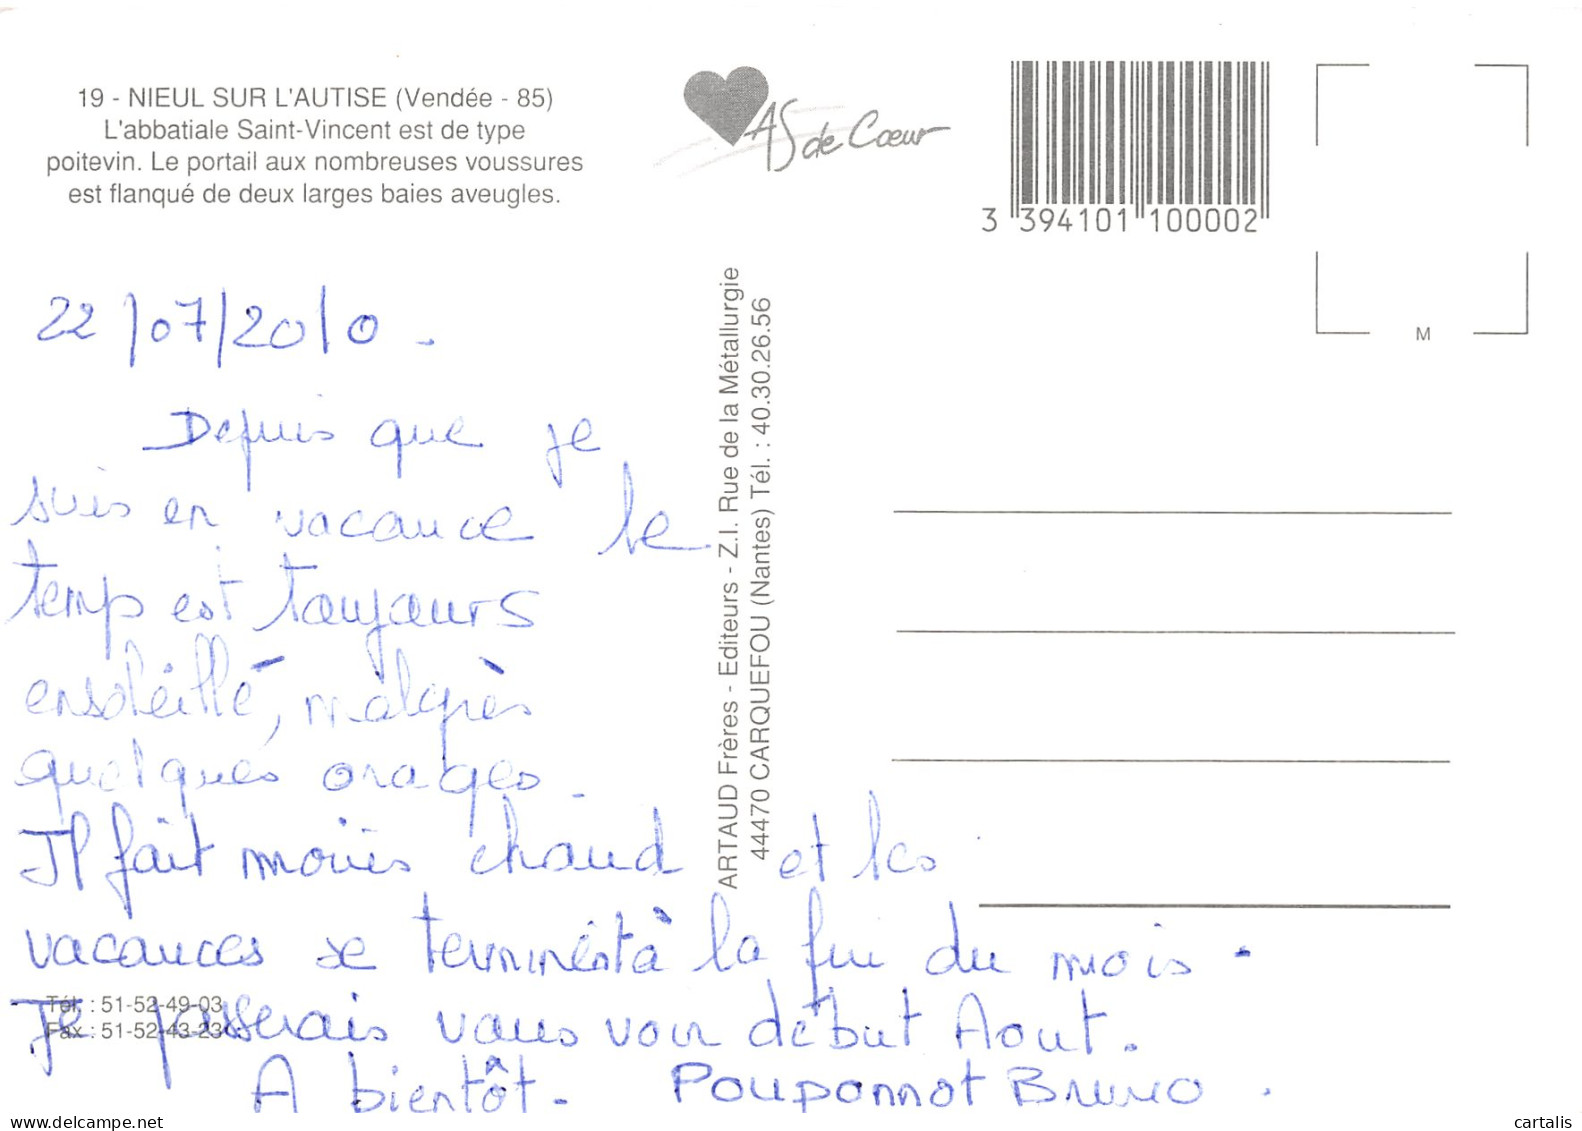 19 - NIEUL SUR L'AUTISE (Vendée - 85)
L'abbatiale Saint-Vincent est de type
poitevin. Le portail aux nombreuses voussures
est flanqué de deux larges baies aveugles.
AS de Cœur
3 394101 100002
M
ARTAUD Frères - Editeurs - Z.I. Rue de la Métallurgie
44470 CARQUEFOU (Nantes) Tél. : 40.30.26.56
22/07/2010.
Depuis que je
suis en vacance le
temps est toujours
ensoleillé, malgrès
quelques orages.
Il fait moins chaud et les
vacances se terminent à la fin du mois.
Je passerais vous voir début Aout.
A bientôt. Pouponnot Bruno.
Tél. : 51-52-49-03
Fax : 51-52-43-23
www.cartalis.com
cartalis